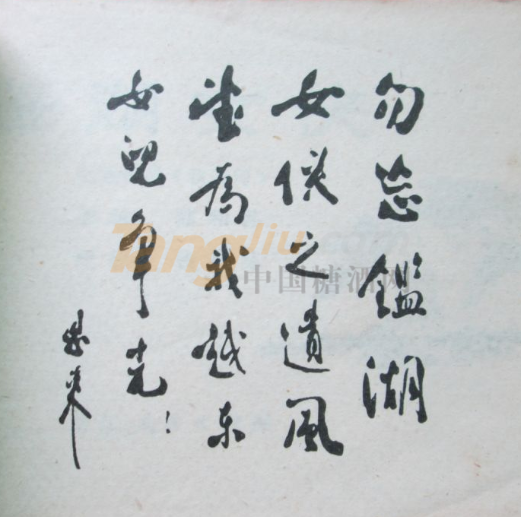 勿忘鑑湖
女俠之遺風
望為我越東
女兒爭光！
恩来
Tangliu.com
中国糖酒网